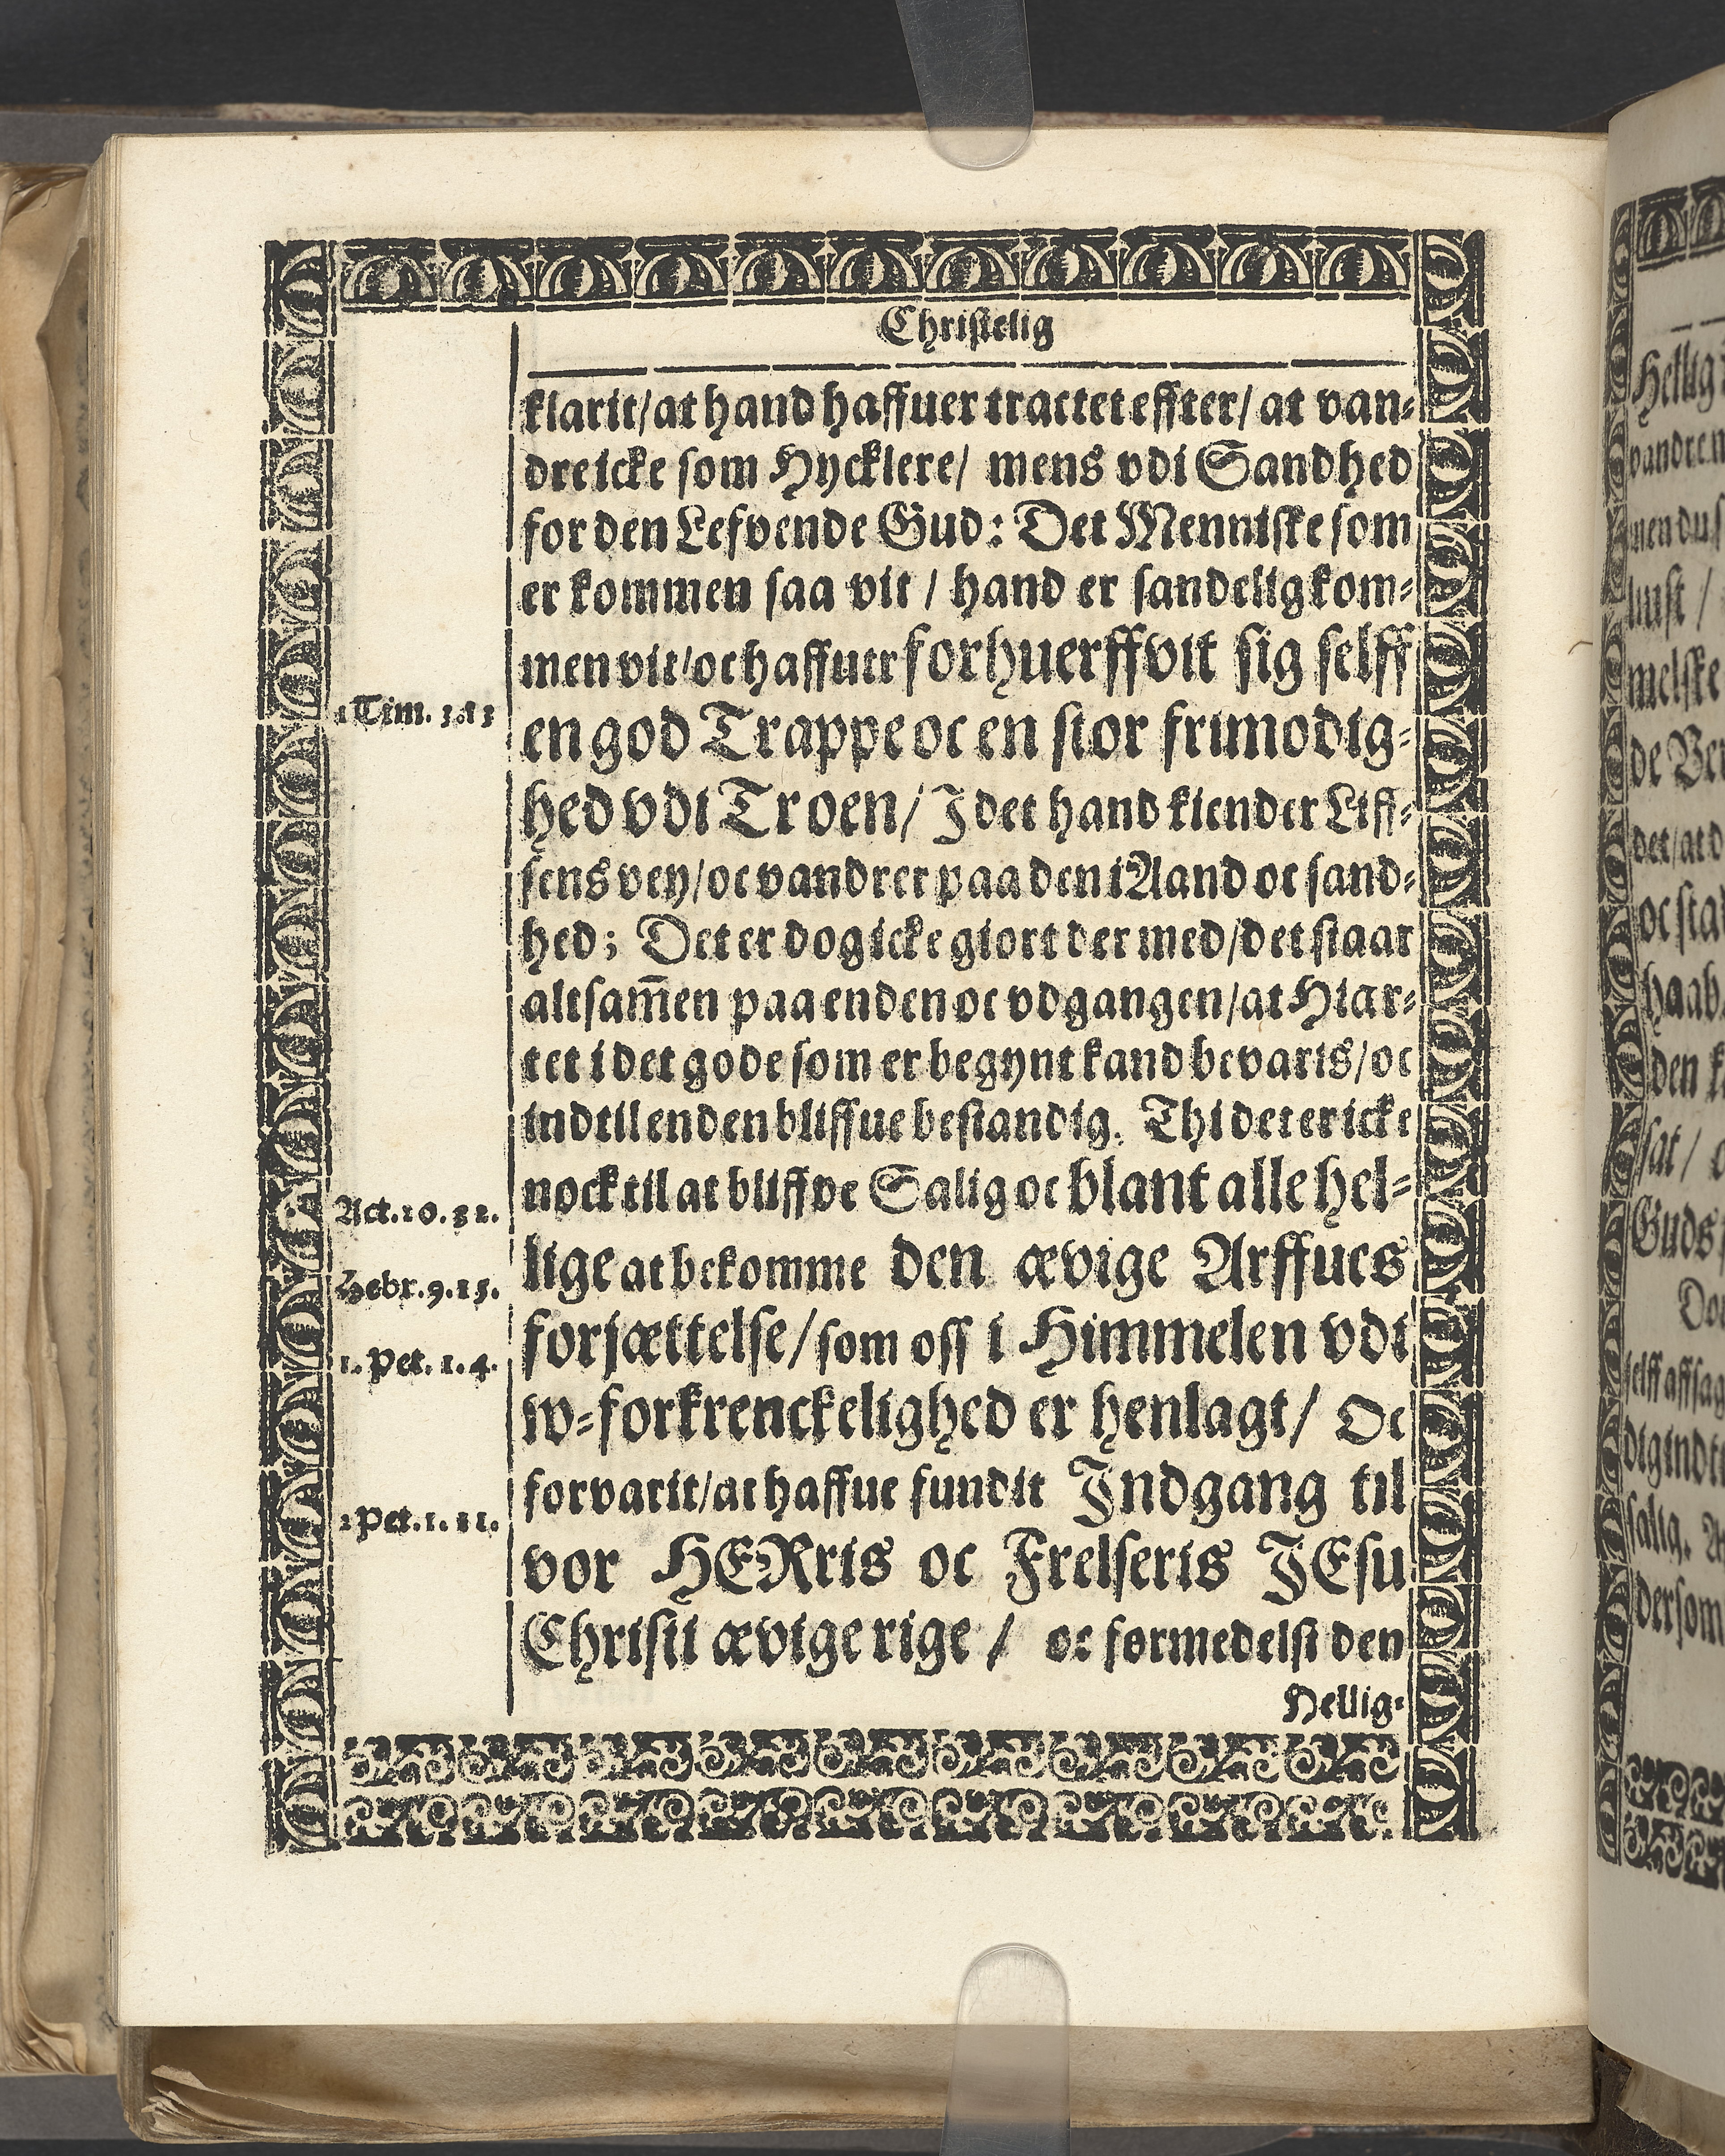 Christelig
klarit/ at hand haffuer tractet effter/ at van⸗
dre icke som Hycklere/ mens vdi Sandhed
for den Lefvende Gud: Det Menniske som
er kommen saa vit / hand er sandelig kom⸗
men vit/ oc haffuer forhuerffvit sig selff
1 Tim. 3. 13
en god Trappe oc en stor frimodig⸗
hed vdi Troen/ I det hand kiender Liff⸗
sens vey/ oc vandrer paa den i Aand oc sand⸗
hed; Det er dog icke giort der med/ det staar
altsam̄en paa enden oc vdgangen/ at Hiar⸗
tet i det gode som er begynt kand bevaris/ oc
indtil enden bliffue bestandig. Thi det er icke
nock til at bliffve Salig oc blant alle hel⸗
Act. 10. 32.
lige at bekomme den ævige Arffues
Hebr. 9. 15.
forjættelse/ som oss i Himmelen vdi
1. Pet. 1. 4.
w⸗forkrenckelighed er henlagt/ Oc
forvarit/ at haffue fundit Indgang til
2 Pet. 1. 11.
vor HERris oc Frelseris JEsu
Christi ævige rige / oc formedelst den
Hellig⸗
Hellig
vandre n
men du s
lust /
melske
de Ver
det/ at d
oc sta
haab
den k
sat /
Guds
selff affsag
dig indt
salig. A
dersom